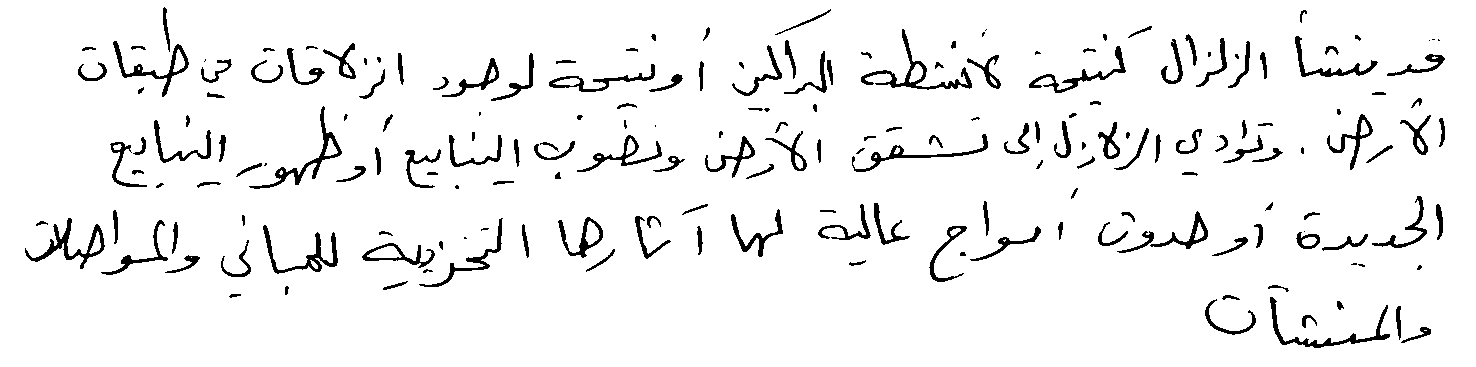 قد ينشأ الزلزال كنتيجة لأنشطة البراكين أو نتيجة لوجود انزلاقات في طبقات
الأرض . وتؤدي الزلازل إلى تشقق الأرض ونضوب الينابيع أو ظهور الينابيع
الجديدة أو حدوث أمواج عالية لها آثارها التخريبية للمباني والمواصلات
والمنشآت